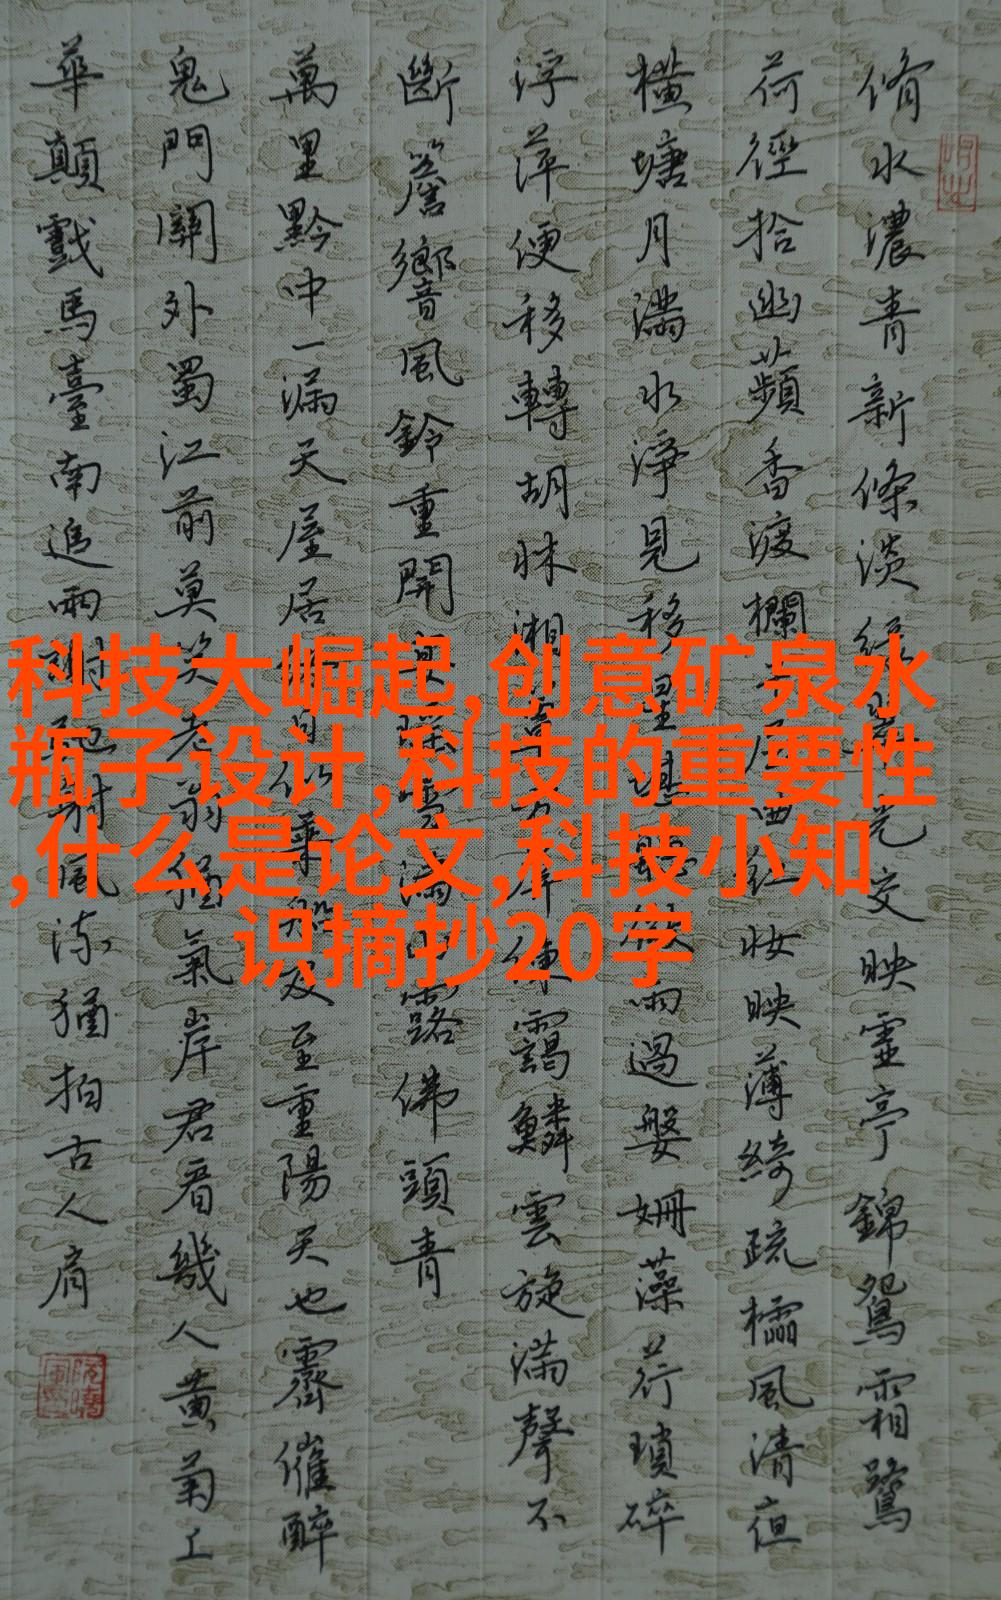 科技大崛起,创意矿泉水
瓶子设计,科技的重要性
,什么是论文,科技小知
识摘抄20字
脩水濃青新條淡綠翠光交映亭錦鴛霜鷺
荷徑拾幽蘋香渡欄紅妝映薄綺疏櫺風清
橫塘月滿水淨見移星雨過媻姍藻荇瑣碎
浮萍便移轉胡牀湘練靄鱗雲旋滿聲不
斷簷響風鈴重開滿山露佛頭青
萬里黔中一漏天屋居日似乘船及至重陽天也霽催醉
鬼門關外蜀江前莫笑老翁猶氣岸君看幾人黃菊上
華顛戲馬臺南追兩謝馳射風流猶拍古人肩